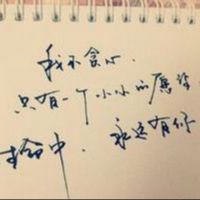 我不贪心.
只有一个小小的愿望
生命中.永远有你